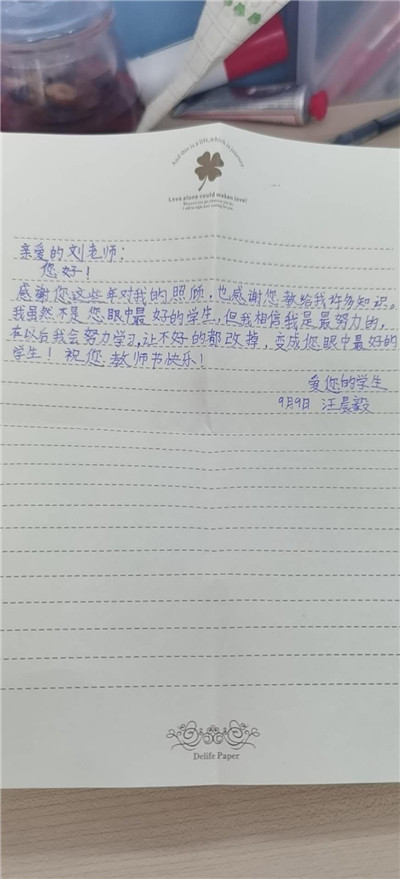 And this is a life, which is journey
Love alone could waken love!
亲爱的刘老师：
您好！
感谢您这些年对我的照顾，也感谢您教给我许多知识。
我虽然不是您眼中最好的学生，但我相信我是最努力的，
在以后我会努力学习，让不好的都改掉，变成您眼中最好的
学生！祝您教师节快乐！
爱您的学生
9月9日 汪晨毅
Delife Paper